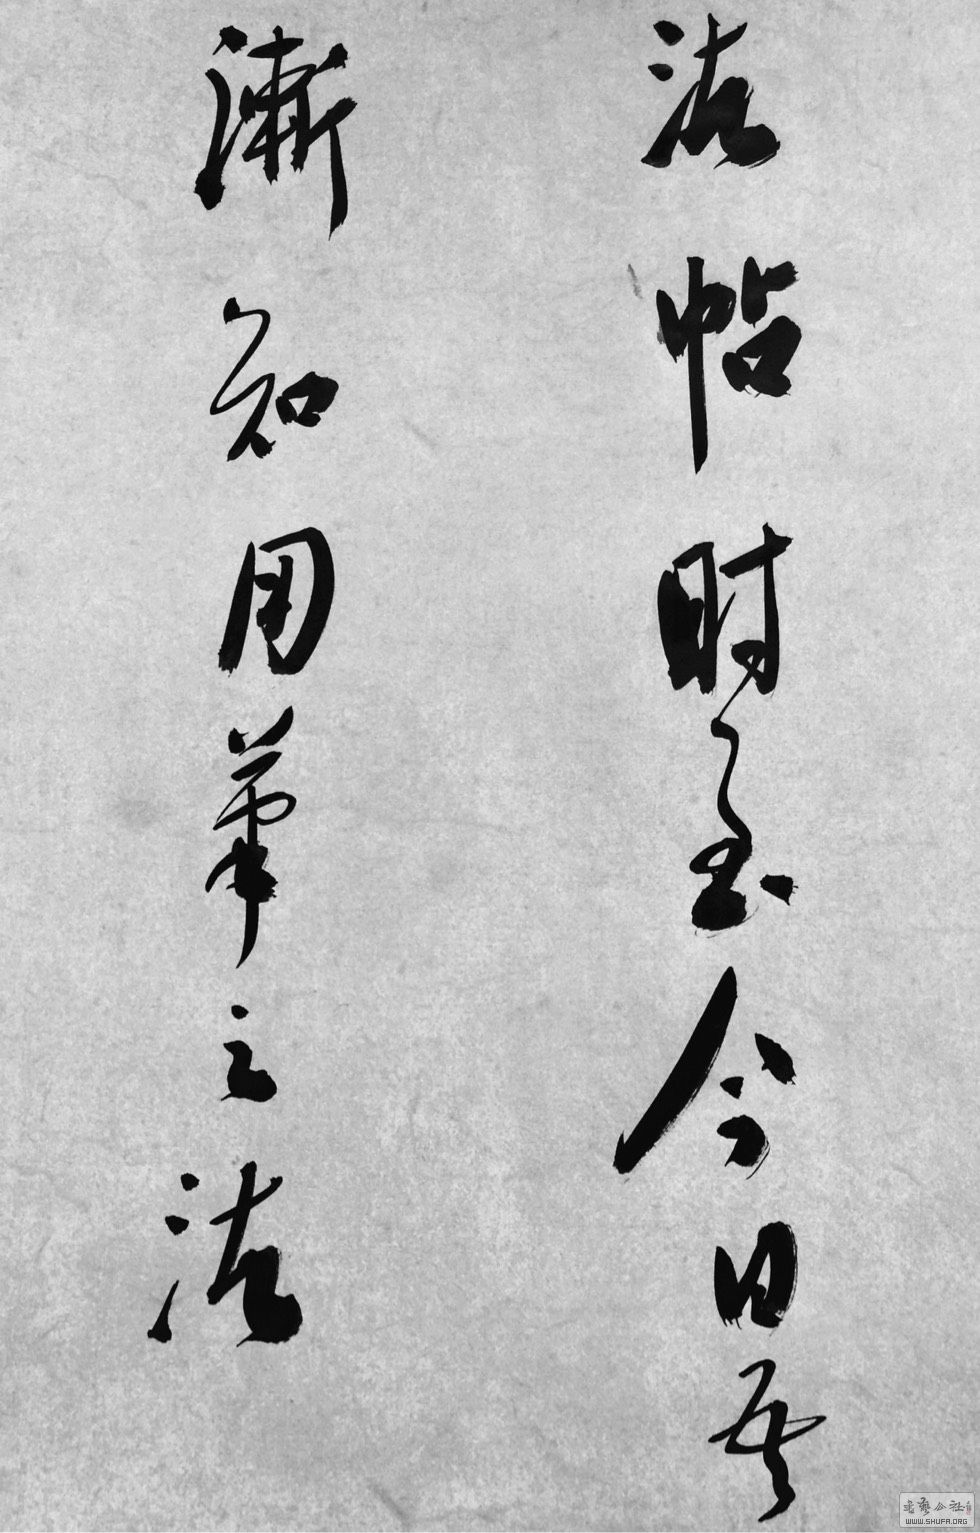 法帖时至今日吾
漸知用筆之法
書藝公社
WWW.SHUFA.ORG